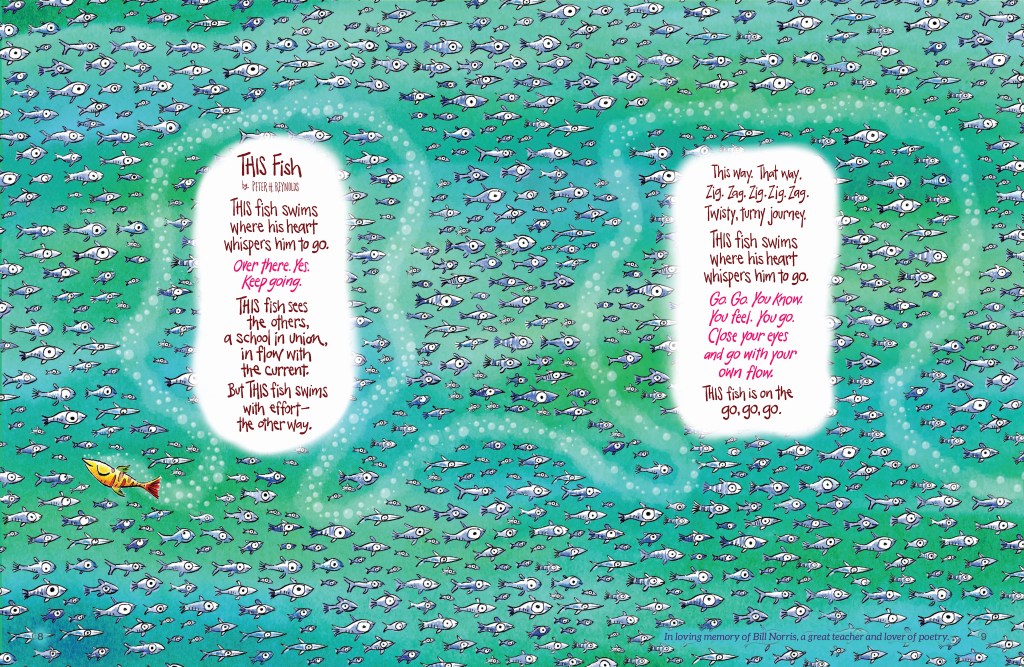 THIS Fish
by PETER H. REYNOLDS
THIS fish swims
where his heart
whispers him to go.
Over there. Yes.
Keep going.
THIS fish sees
the others,
a school in union,
in flow with
the current.
But THIS fish swims
with effort—
the other way.
This way. That way.
Zig. Zag. Zig. Zig. Zag.
Twisty, turny journey.
THIS fish swims
where his heart
whispers him to go.
Go. Go. You know.
You feel. You go.
Close your eyes
and go with your
own flow.
THIS fish is on the
go, go, go.
8
In loving memory of Bill Norris, a great teacher and lover of poetry.
9